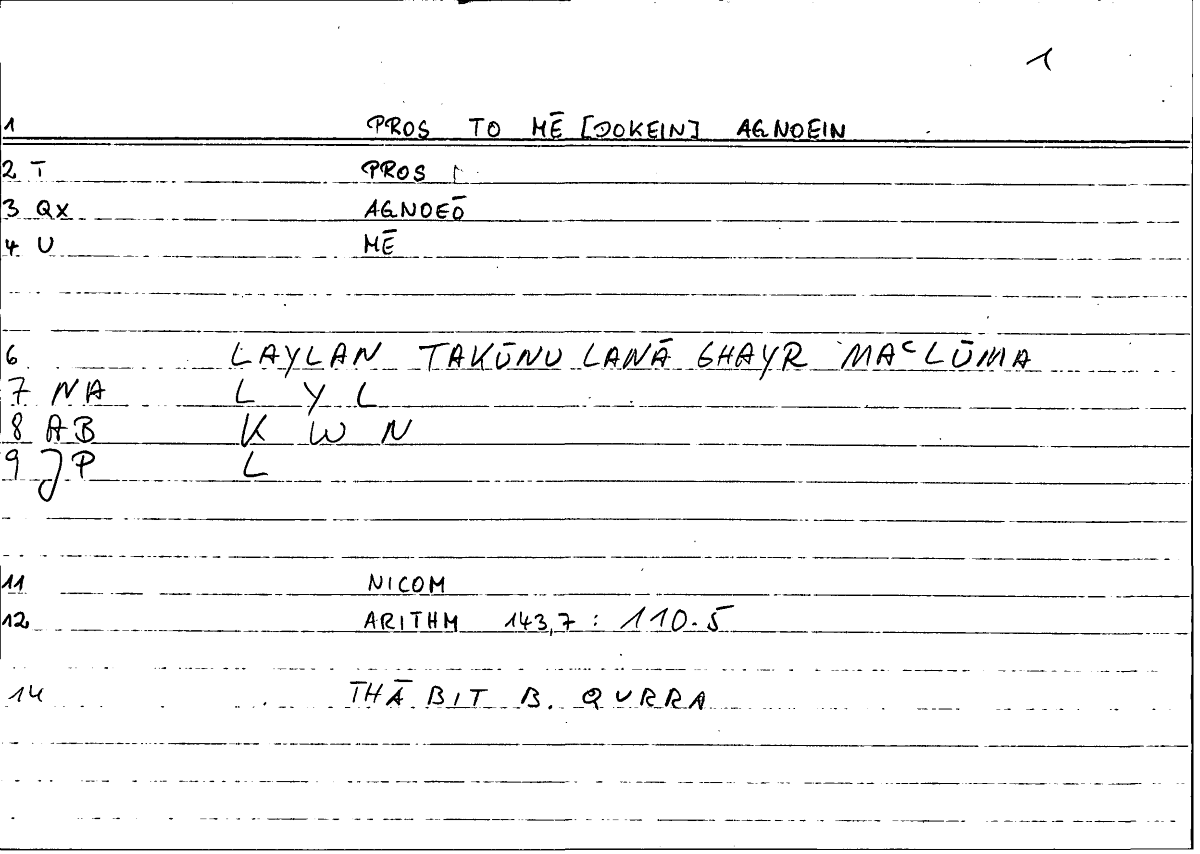 1
1 PROS TO MĒ [DOKEIN] AGNOEIN
2 T PROS
3 QX AGNOEŌ
4 U MĒ
6 LAYLAN TAKŪNU LANĀ GHAYR MAᶜLŪMA
7 NA L Y L
8 AB K W N
9 JP L
11 NICOM
12 ARITHM 143,7 : 110.5
14 THĀBIT B. QURRA